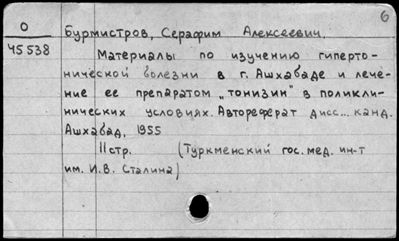 6
О
45538
Бурмистров, Серафим Алексеевич.
Материалы по изучению гиперто-
нической болезни в г. Ашхабаде и лече-
ние ее препаратом „тонизин" в поликли-
нических условиях. Автореферат дисс... канд.
Ашхабад, 1955
11стр. (Туркменский гос. мед. ин-т
им. И.В. Сталина)